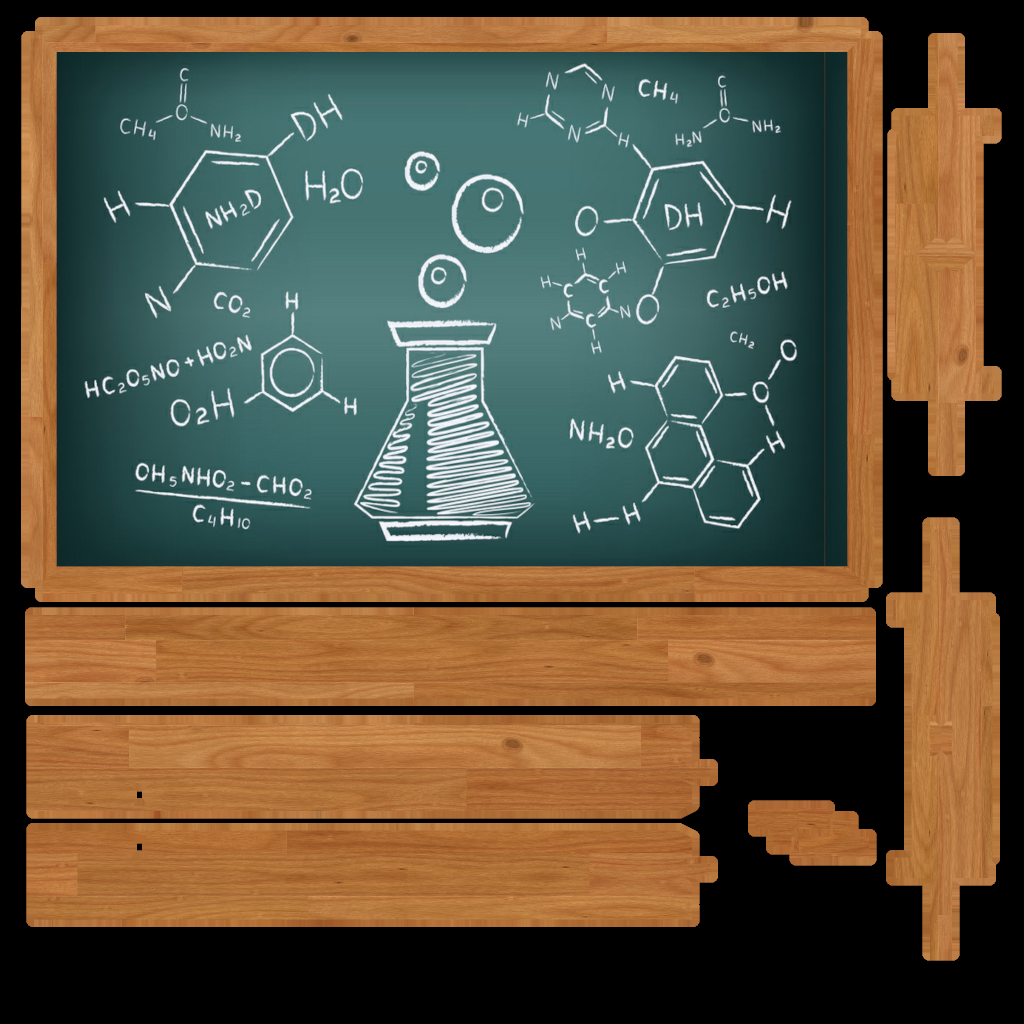 C
O
CH₄ NH₂
DH
NH₂D
H
N
H₂O
CO₂
HC₂O₅NO+HO₂N
H
O₂H
H
OH₅NHO₂-CHO₂
C₄H₁₀
N
N
H
N
H
CH₄
C
O
H₂N NH₂
O
DH
H
O
H
H H
C C
N C N
H
C₂H₅OH
CH₂
O
H O
NH₂O
H
H—H